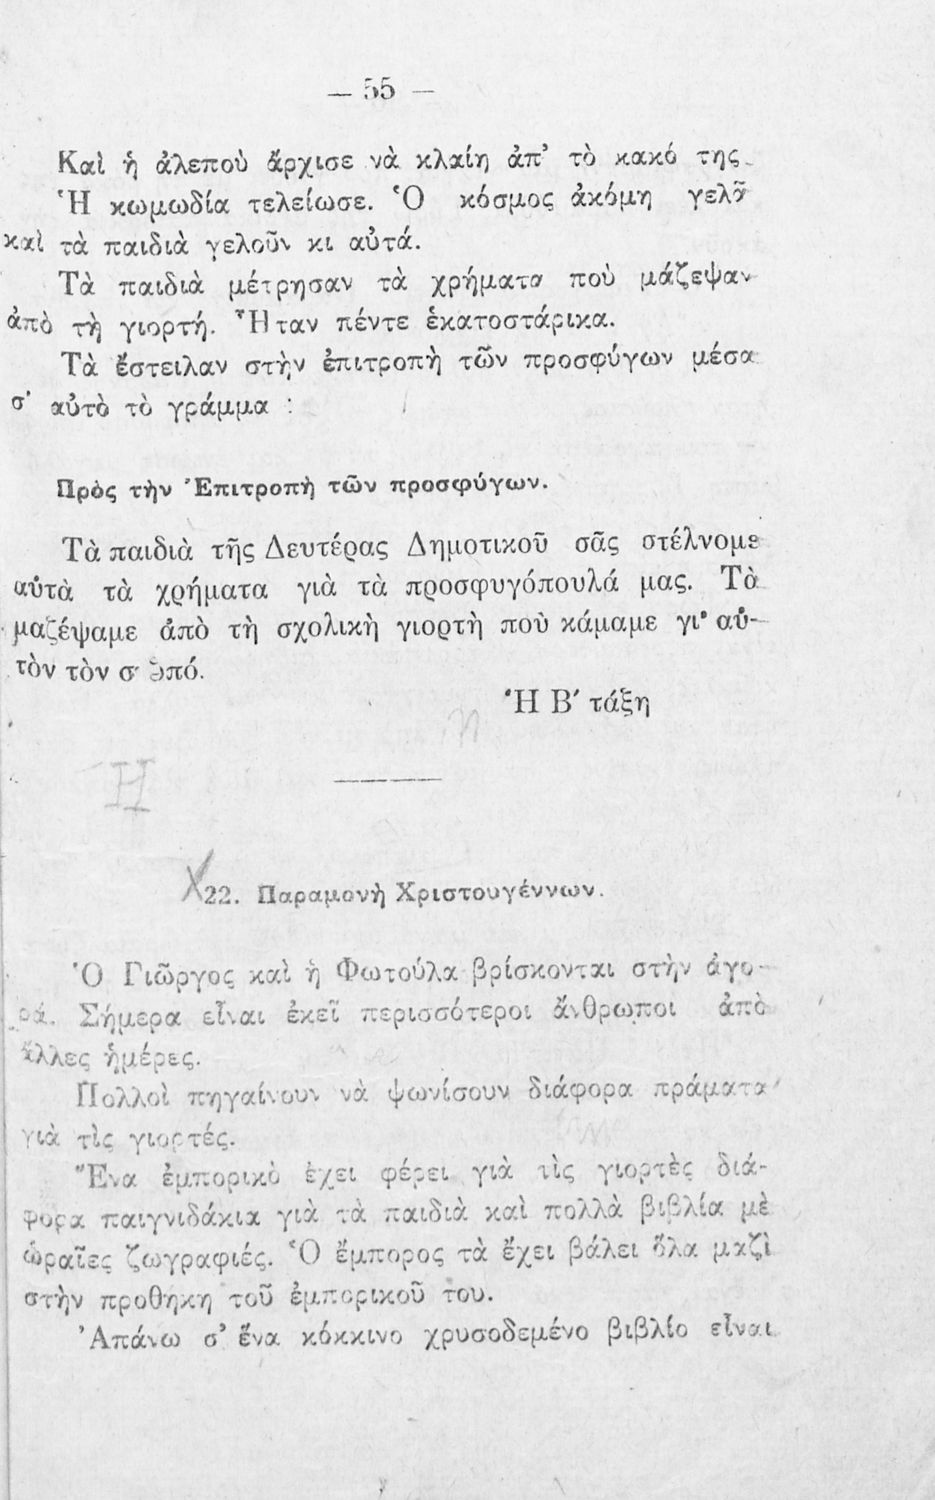 — 55 —
Καὶ ἡ ἀλεποὺ ἄρχισε νὰ κλαίῃ ἀπ’ τὸ κακό της.
Ἡ κωμωδία τελείωσε. Ὁ κόσμος ἀκόμη γελᾷ
καὶ τὰ παιδιὰ γελοῦν κι αὐτά.
Τὰ παιδιὰ μέτρησαν τὰ χρήματα ποὺ μάζεψαν
ἀπὸ τὴ γιορτή. Ἦταν πέντε ἑκατοστάρικα.
Τὰ ἔστειλαν στὴν ἐπιτροπὴ τῶν προσφύγων μέσα
σ’ αὐτὸ τὸ γράμμα :
Πρὸς τὴν Ἐπιτροπὴ τῶν προσφύγων.
Τὰ παιδιὰ τῆς Δευτέρας Δημοτικοῦ σᾶς στέλνομε
αὐτὰ τὰ χρήματα γιὰ τὰ προσφυγόπουλά μας. Τὰ
μαζέψαμε ἀπὸ τὴ σχολικὴ γιορτὴ ποὺ κάμαμε γι’ αὐ-
τὸν τὸν σκοπό.
Ἡ Β′ τάξη
Η
22. Παραμονὴ Χριστουγέννων.
Ὁ Γιῶργος καὶ ἡ Φωτούλα βρίσκονται στὴν ἀγο-
ρά. Σήμερα εἶναι ἐκεῖ περισσότεροι ἄνθρωποι ἀπὸ
ἄλλες ἡμέρες.
Πολλοὶ πηγαίνουν νὰ ψωνίσουν διάφορα πράματα
γιὰ τὶς γιορτές.
Ἕνα ἐμπορικὸ ἔχει φέρει γιὰ τὶς γιορτὲς διά-
φορα παιγνιδάκια γιὰ τὰ παιδιὰ καὶ πολλὰ βιβλία μὲ
ὡραῖες ζωγραφιές. Ὁ ἔμπορος τὰ ἔχει βάλει ὅλα μαζὶ
στὴν προθήκη τοῦ ἐμπορικοῦ του.
Ἀπάνω σ’ ἕνα κόκκινο χρυσοδεμένο βιβλίο εἶναι